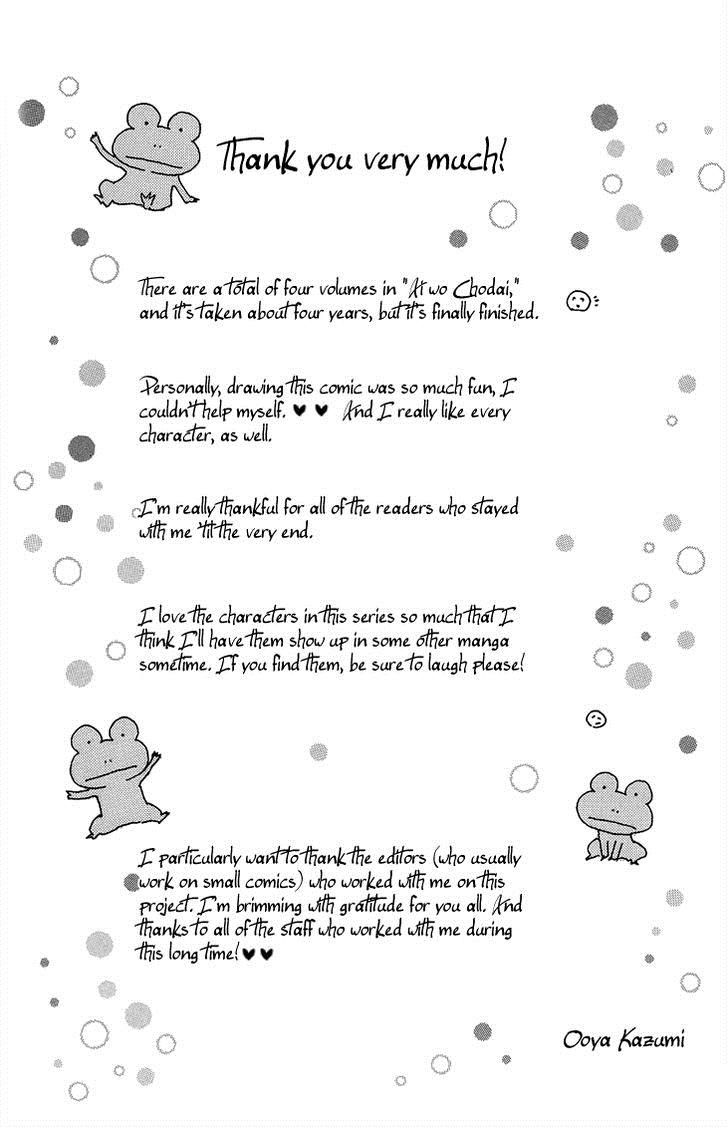 Thank you very much!
There are a total of four volumes in "Ai wo Chodai,"
and it's taken about four years, but it's finally finished.
Personally, drawing this comic was so much fun, I
couldn't help myself. ♥ ♥ And I really like every
character, as well.
I'm really thankful for all of the readers who stayed
with me 'til the very end.
I love the characters in this series so much that I
think I'll have them show up in some other manga
sometime. If you find them, be sure to laugh please!
I particularly want to thank the editors (who usually
work on small comics) who worked with me on this
project. I'm brimming with gratitude for you all. And
thanks to all of the staff who worked with me during
this long time! ♥ ♥
Ooya Kazumi